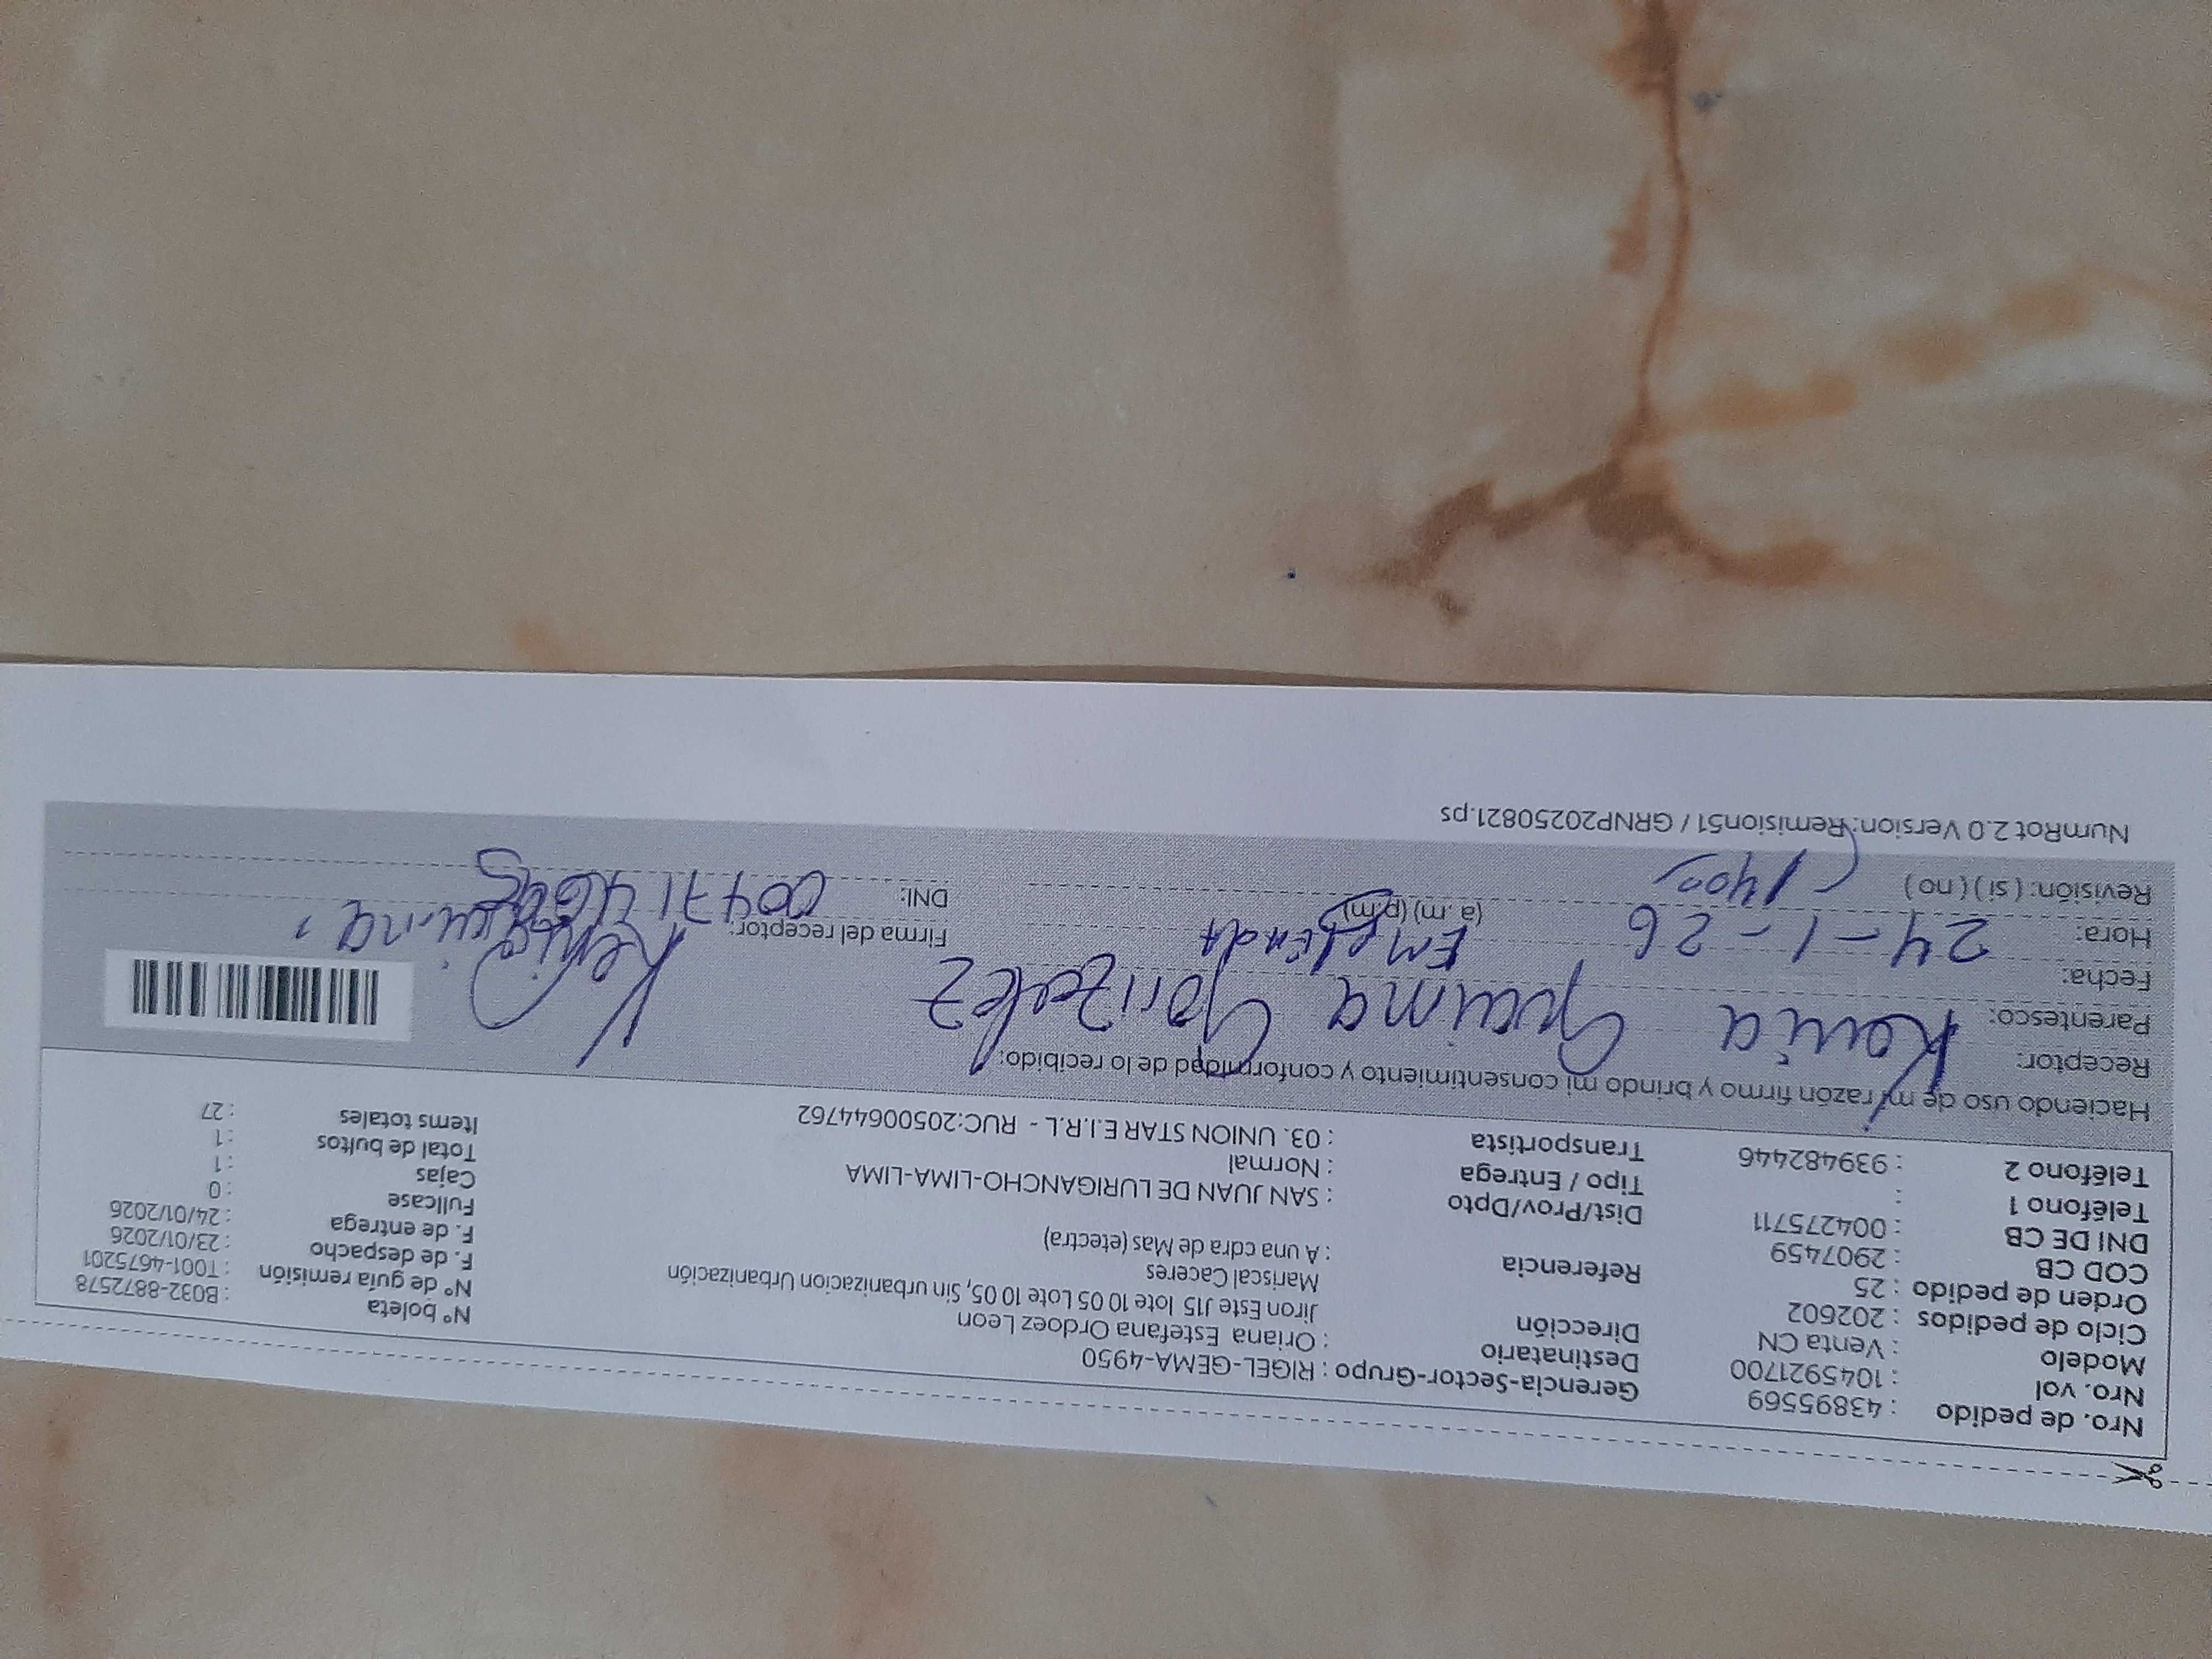 Nro. de pedido : 43895569
Nro. vol : 1045921700
Modelo : Venta CN
Ciclo de pedidos : 202602
Orden de pedido : 25
COD CB : 2907459
DNI DE CB : 004275711
Teléfono 1 :
Teléfono 2 : 939482446
Gerencia-Sector-Grupo : RIGEL-GEMA-4950
Destinatario : Oriana Estefana Ordoez Leon
Dirección Jiron Este J15 lote 10 05 Lote 10 05, Sin urbanizacion Urbanización
Mariscal Caceres
Referencia : A una cdra de Mas (etectra)
Dist/Prov/Dpto : SAN JUAN DE LURIGANCHO-LIMA-LIMA
Tipo / Entrega : Normal
Transportista : 03. UNION STAR E.I.R.L - RUC:20500644762
N° boleta : B032-8872578
N° de guía remisión : T001-4675201
F. de despacho : 23/01/2026
F. de entrega : 24/01/2026
Fullcase : 0
Cajas : 1
Total de bultos : 1
Items totales : 27
Haciendo uso de mi razón firmo y brindo mi consentimiento y conformidad de lo recibido:
Receptor: Kenia Guaima
Parentesco:
Fecha: 24-1-26
Hora: (a.m) (p.m)
Revisión: ( si ) ( no ) 1400
Firma del receptor: Kenia Guaima
DNI:
NumRot 2.0 Version: Remision51 / GRNP20250821.ps